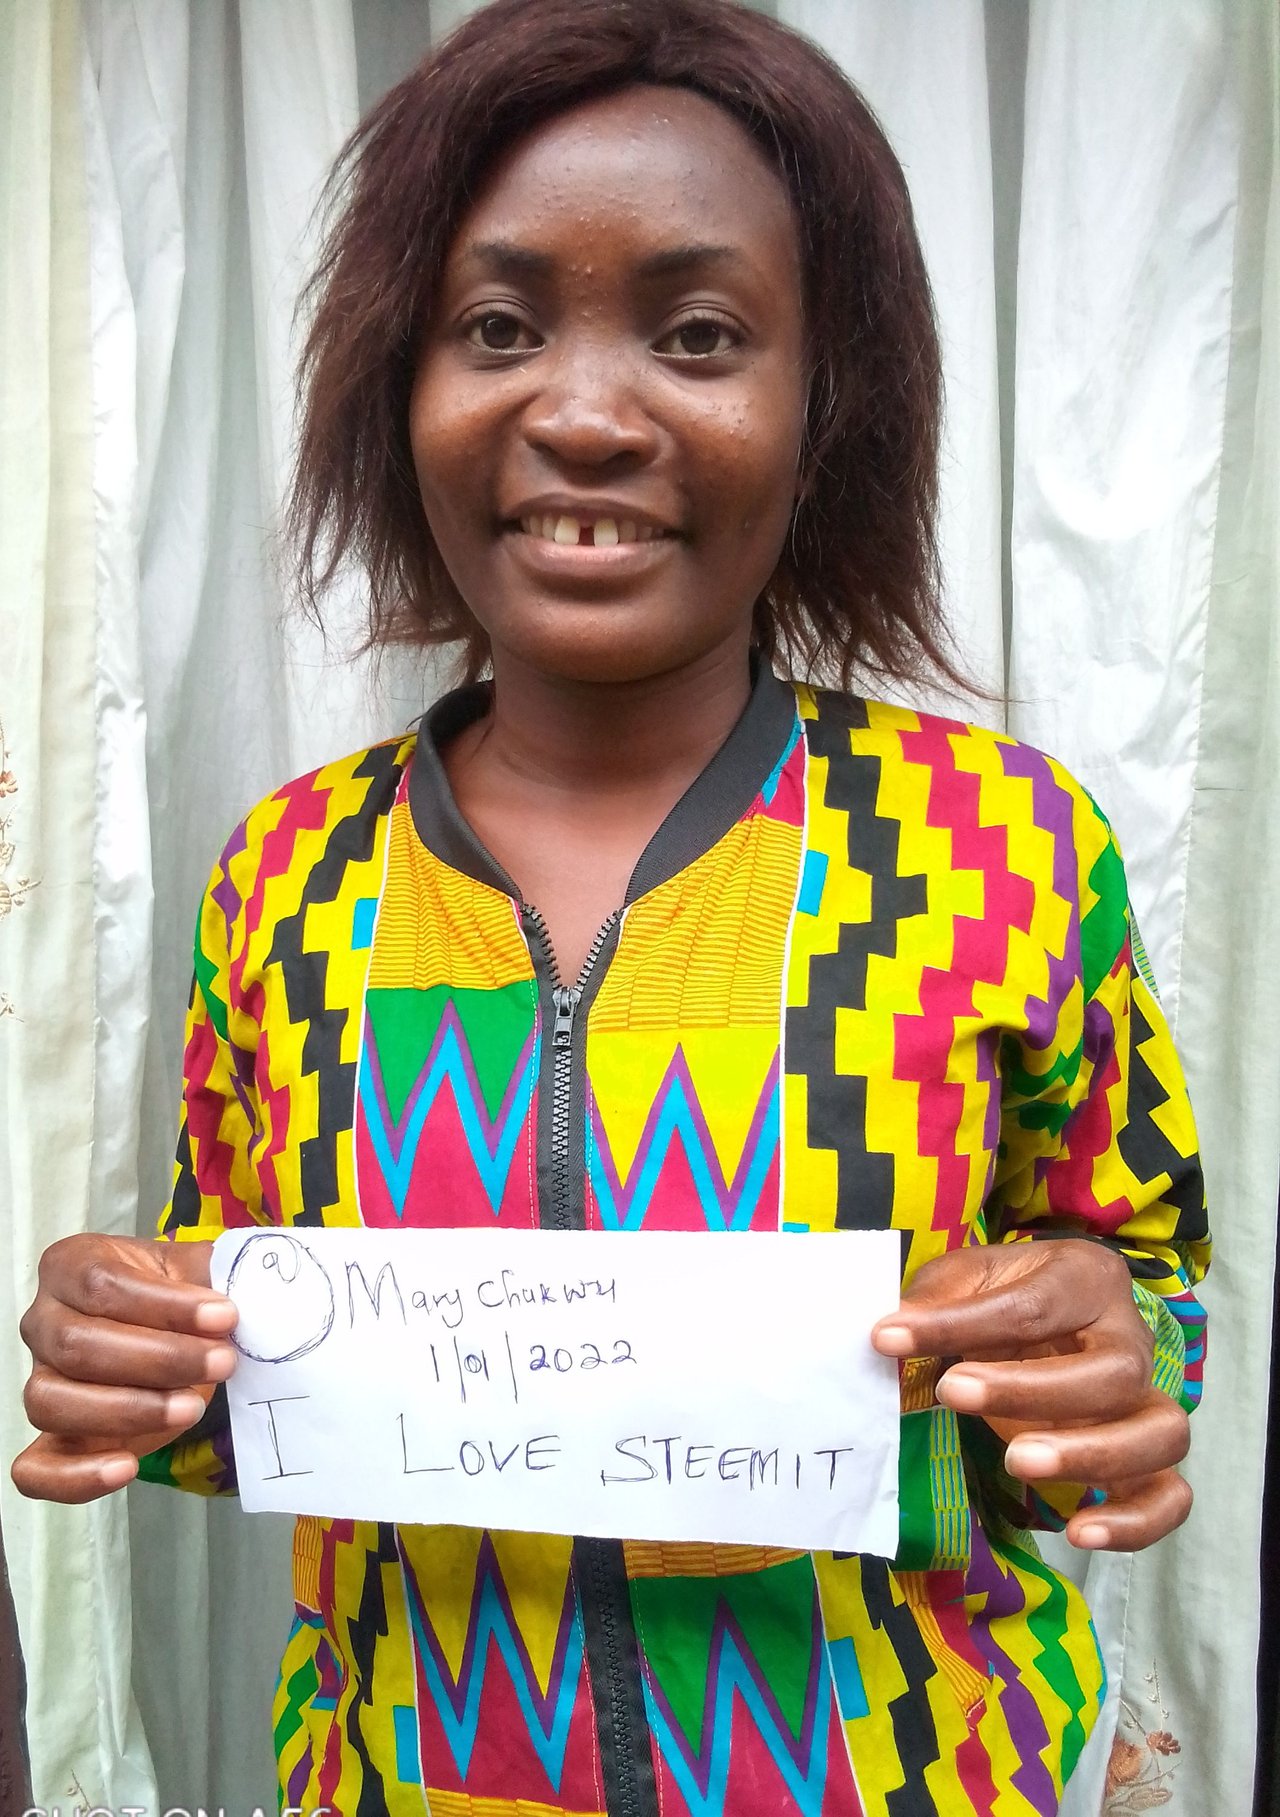 @ Mary Chukwu
1/01/2022
I LOVE STEEMIT
SHOT ON A56